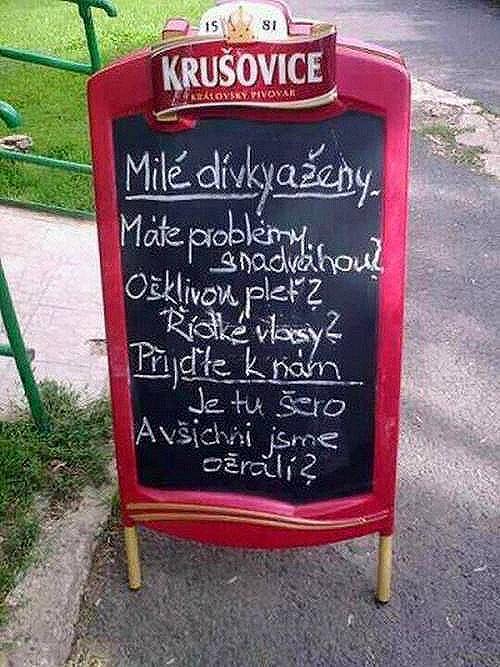 15 81
KRUŠOVICE
KRÁLOVSKÝ PIVOVAR
Milé dívky a ženy
Máte problémy
s nadváhou?
Ošklivou pleť?
Řídké vlasy?
Přijďte k nám
Je tu šero
A všichni jsme
ožralí?